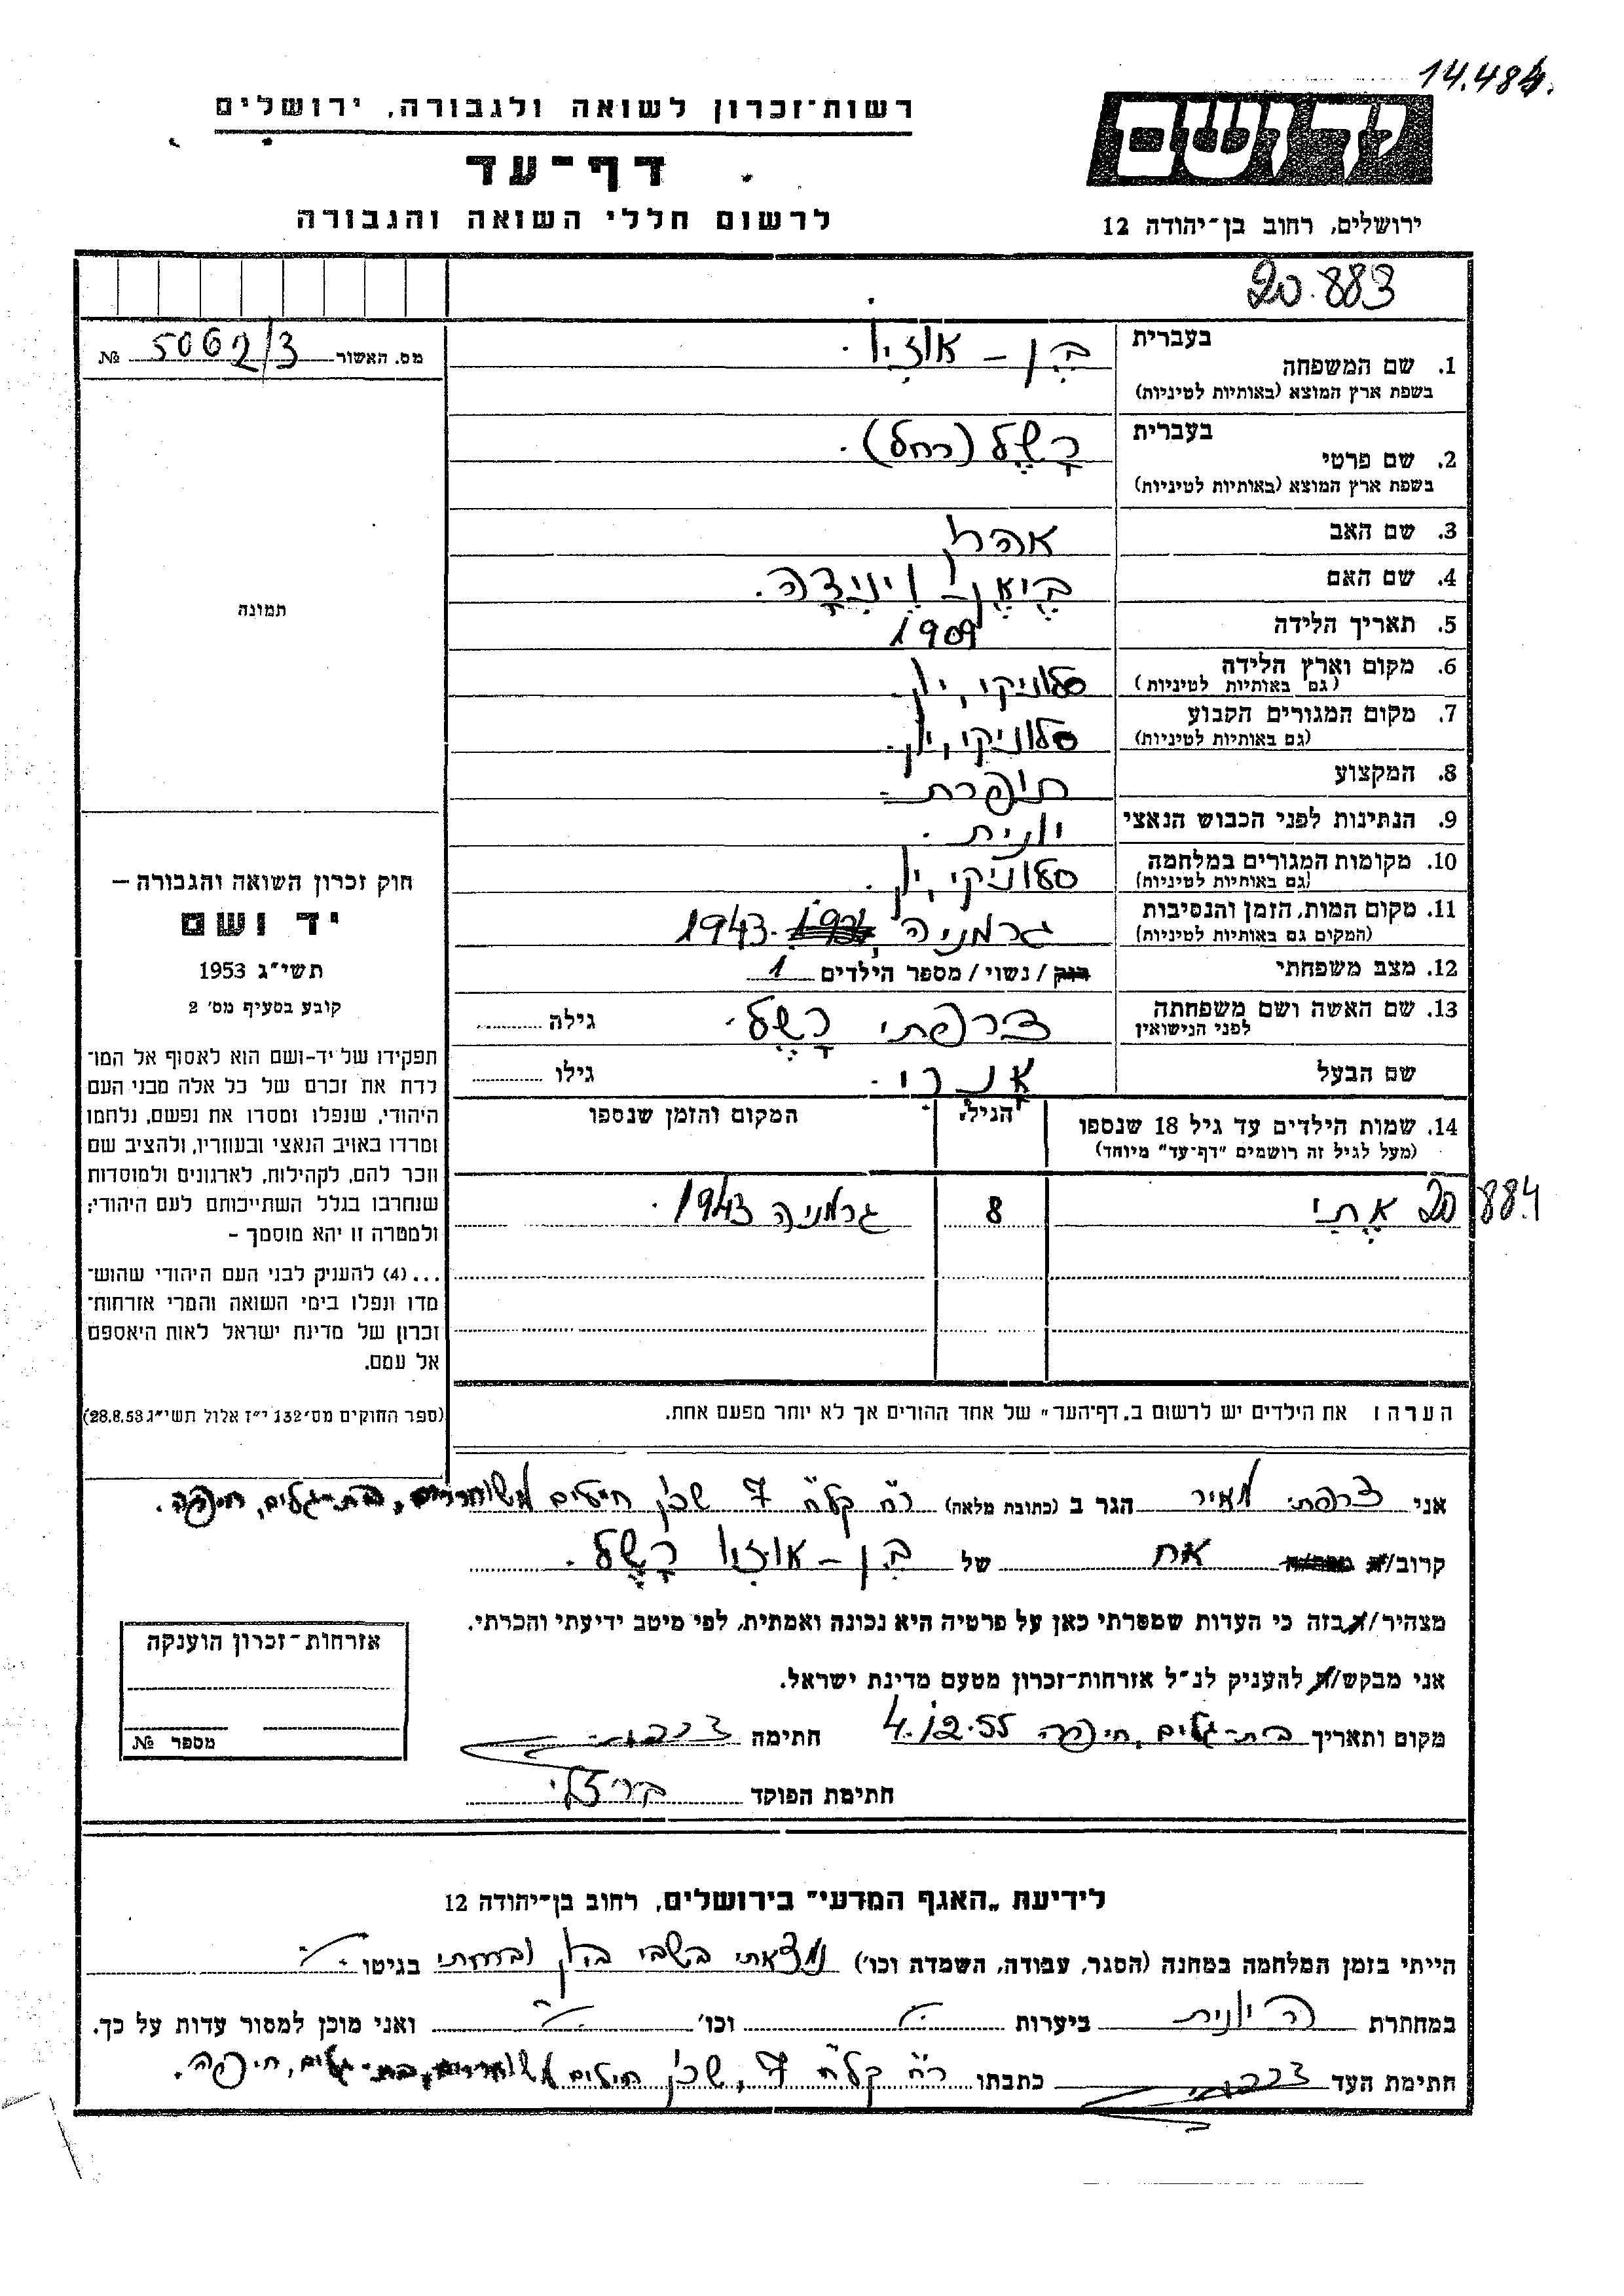 14.484.
רשות־זכרון לשואה ולגבורה, ירושלים
דף־עד
לרשום חללי השואה והגבורה
יד ושם
ירושלים, רחוב בן־יהודה 12
20.883
מס. האשור 5062/3 №
בעברית
1. שם המשפחה בן – אוזיו.
בשפת ארץ המוצא (באותיות לטיניות)
בעברית
2. שם פרטי רשל (רחל).
בשפת ארץ המוצא (באותיות לטיניות)
3. שם האב אהרן
4. שם האם
5. תאריך הלידה 1909
6. מקום וארץ הלידה סלוניקי, יון.
(גם באותיות לטיניות)
7. מקום המגורים הקבוע סלוניקי, יון.
(גם באותיות לטיניות)
8. המקצוע תופרת.
9. הנתינות לפני הכבוש הנאצי יונית.
10. מקומות המגורים במלחמה סלוניקי, יון.
(גם באותיות לטיניות)
11. מקום המות, הזמן והנסיבות גרמניה, 1943.
(המקום גם באותיות לטיניות)
12. מצב משפחתי רוק / נשוי / מספר הילדים 1
13. שם האשה ושם משפחתה צרפתי רשל. גילה
לפני הנישואין
שם הבעל אנרי. גילו
14. שמות הילדים עד גיל 18 שנספו הגיל. המקום והזמן שנספו
(מעל לגיל זה רושמים "דף־עד" מיוחד)
20.884 אתי 8 גרמניה 1943.
הערה: את הילדים יש לרשום ב„דף־העד" של אחד ההורים אך לא יותר מפעם אחת.
תמונה
חוק זכרון השואה והגבורה —
יד ושם
תשי"ג 1953
קובע בסעיף מס' 2
תפקידו של יד-ושם הוא לאסוף אל המו־
לדת את זכרם של כל אלה מבני העם
היהודי, שנפלו ומסרו את נפשם, נלחמו
ומרדו באויב הנאצי ובעוזריו, ולהציב שם
וזכר להם, לקהילות, לארגונים ולמוסדות
שנחרבו בגלל השתייכותם לעם היהודי;
ולמטרה זו יהא מוסמך –
...(4) להעניק לבני העם היהודי שהוש־
מדו ונפלו בימי השואה והמרי אזרחות־
זכרון של מדינת ישראל לאות היאספם
אל עמם.
(ספר החוקים מס' 132 י"ז אלול תשי"ג 28.8.53)
אני צרפתי מאיר הגר ב (כתובת מלאה) רח' קלח 7 שכון חיילים משוחררים, בת-גלים, חיפה.
קרוב/ה אח של בן – אוזיו רשל.
מצהיר/ה בזה כי העדות שמסרתי כאן על פרטיה היא נכונה ואמתית, לפי מיטב ידיעתי והכרתי.
אני מבקש/ת להעניק לנ"ל אזרחות־זכרון מטעם מדינת ישראל.
מקום ותאריך בת-גלים, חיפה 4.12.55 חתימה צרפתי
חתימת הפוקד
אזרחות־זכרון הוענקה
מספר №
לידיעת „האגף המדעי" בירושלים, רחוב בן־יהודה 12
הייתי בזמן המלחמה במחנה (הסגר, עבודה, השמדה וכו') נמצאתי בשבי בהן וברחתי בגיטו
במחתרת היונית ביערות וכו' ואני מוכן למסור עדות על כך.
חתימת העד צרפתי כתבתו רח' קלח 7, שכון חיילים משוחררים, בת-גלים, חיפה.